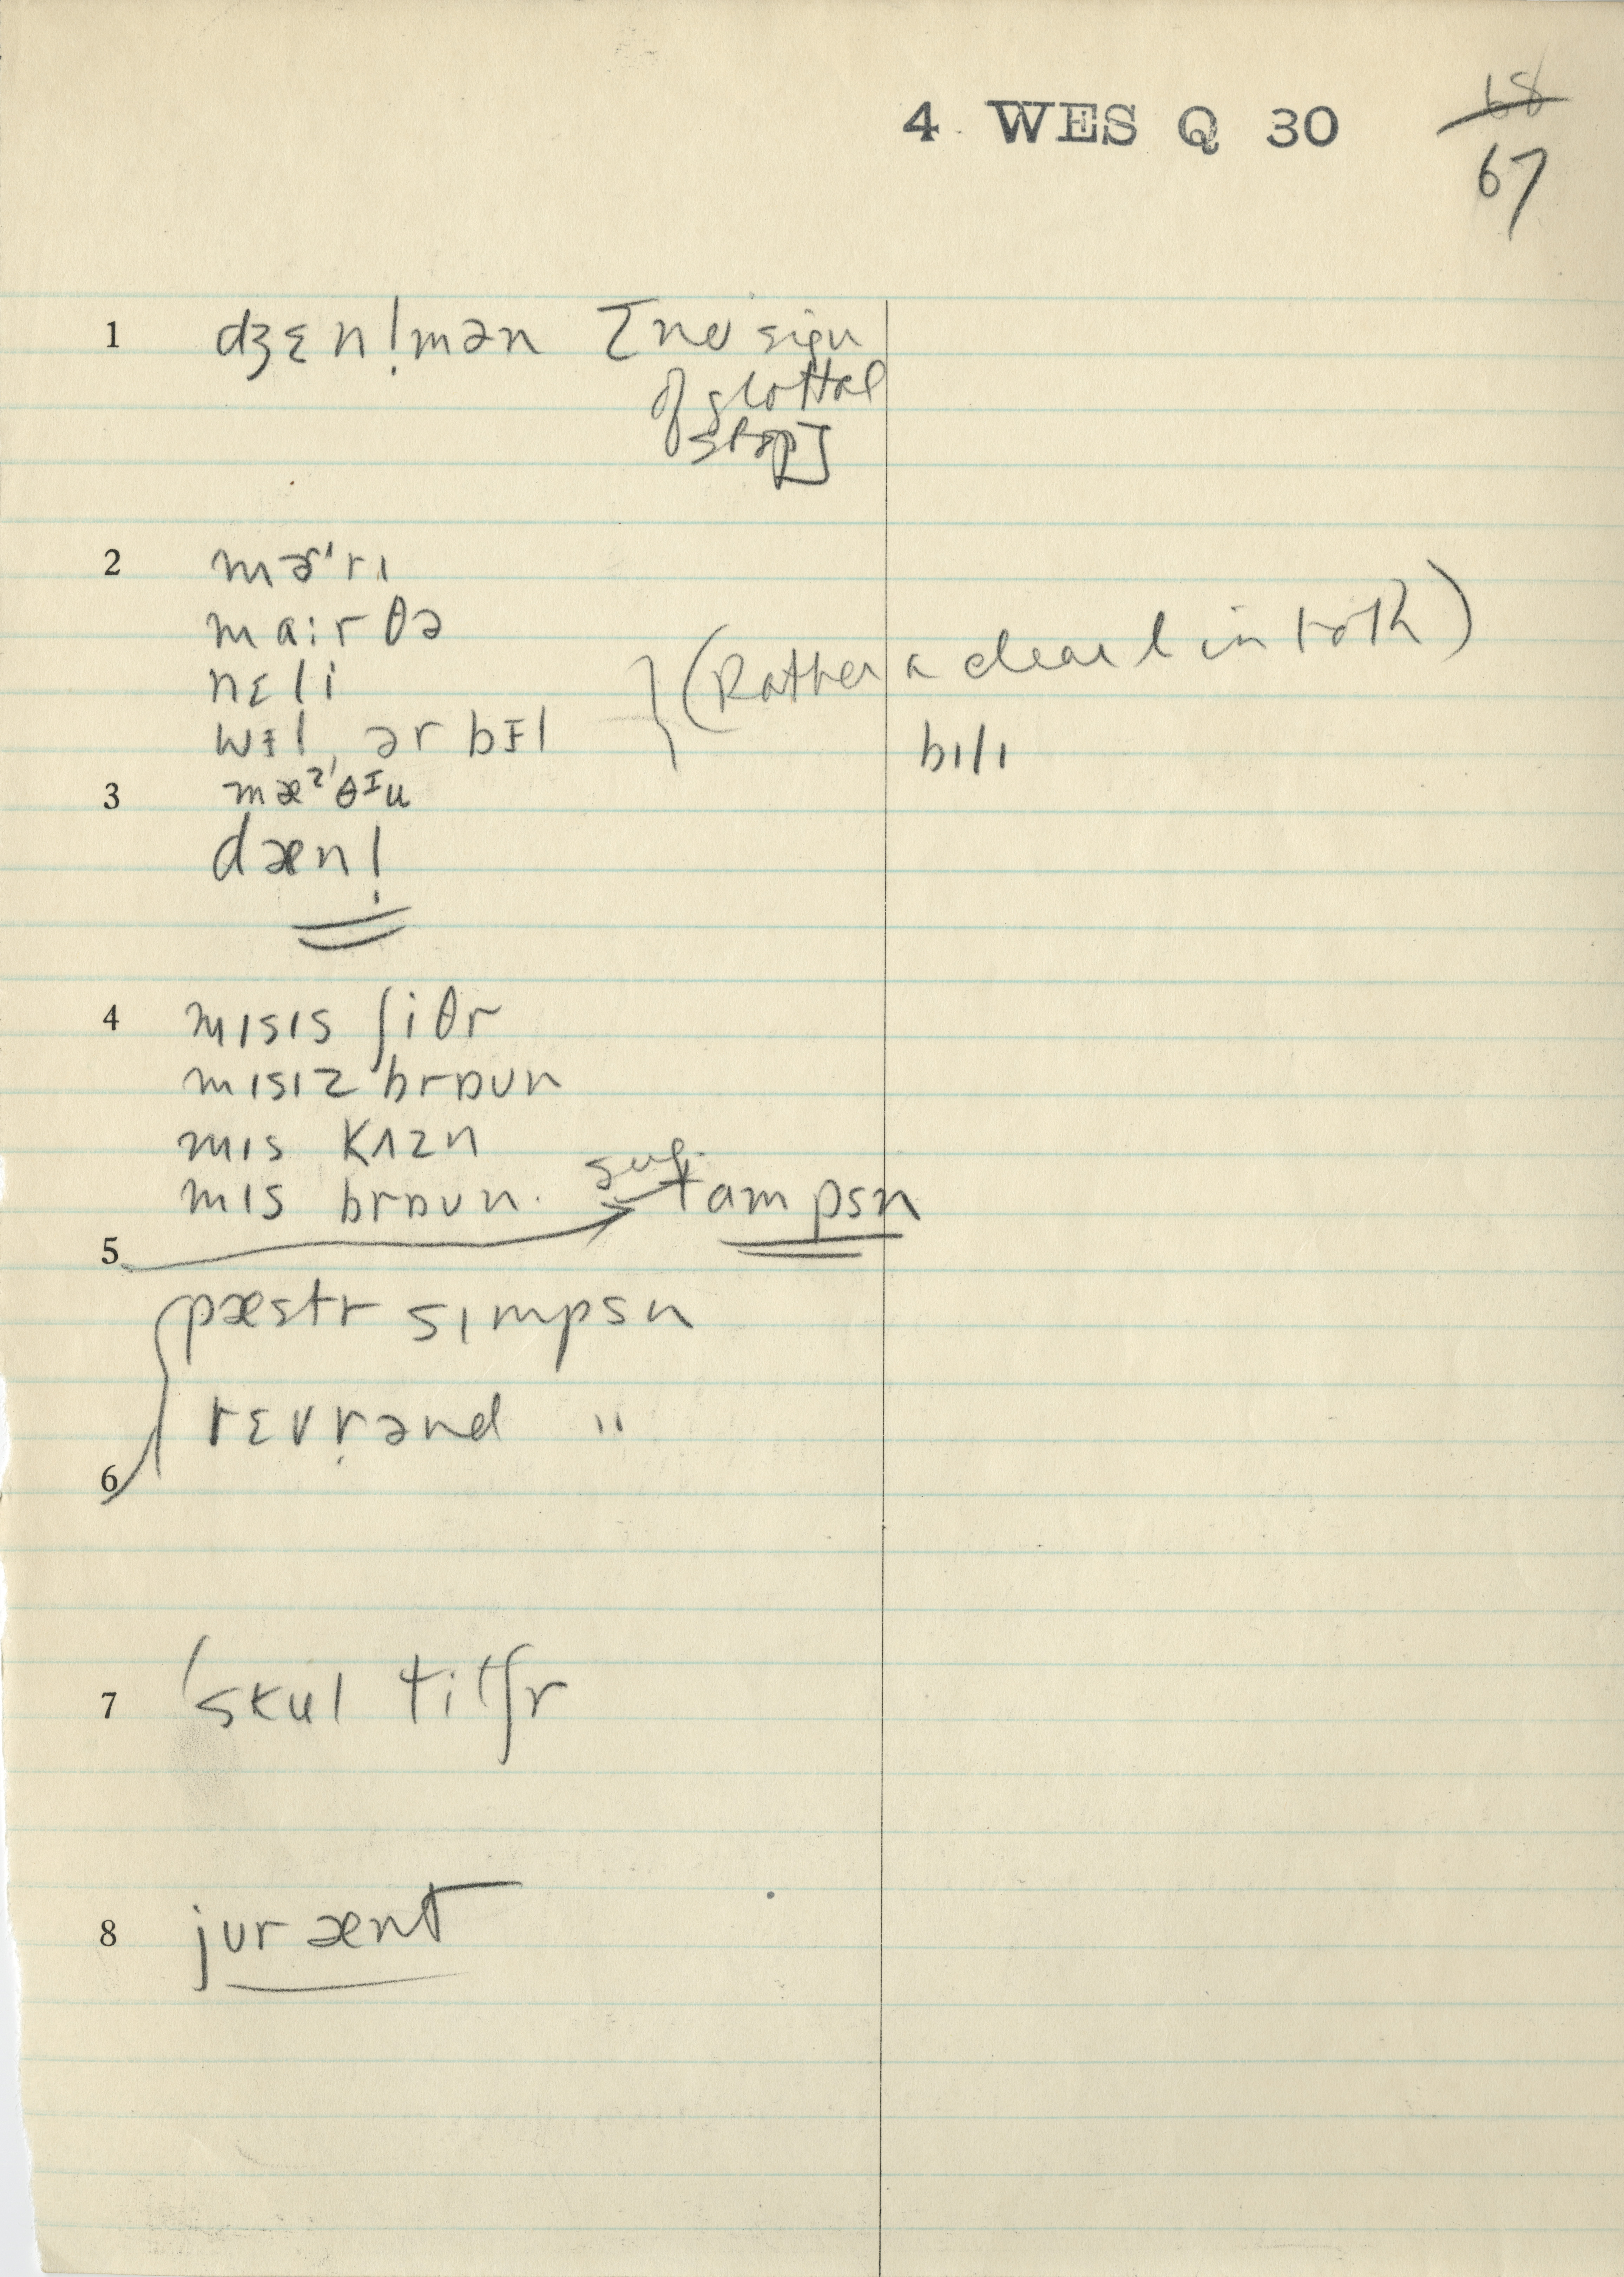 4 WES Q 30
68
67
1 dʒɛnl̩mən [no sign
of glottal
stop]
2 mɚ'rɪ
mɑ:rθə
nɛli
wɪ̵l, ər bɪ̵l
(Rather a clear l in both)
bɪlɪ
3 mæ²'θᴵu
dæn!
4 mɪsɪs ʃiθr
mɪsɪz brɒʊn
mɪs kʌzn
mɪs brɒʊn. sug. tɑmpsn
5
pæstr sɪmpsn
rɛvr̩ənd "
6
7 'skul titʃr
8 jʊr ænt